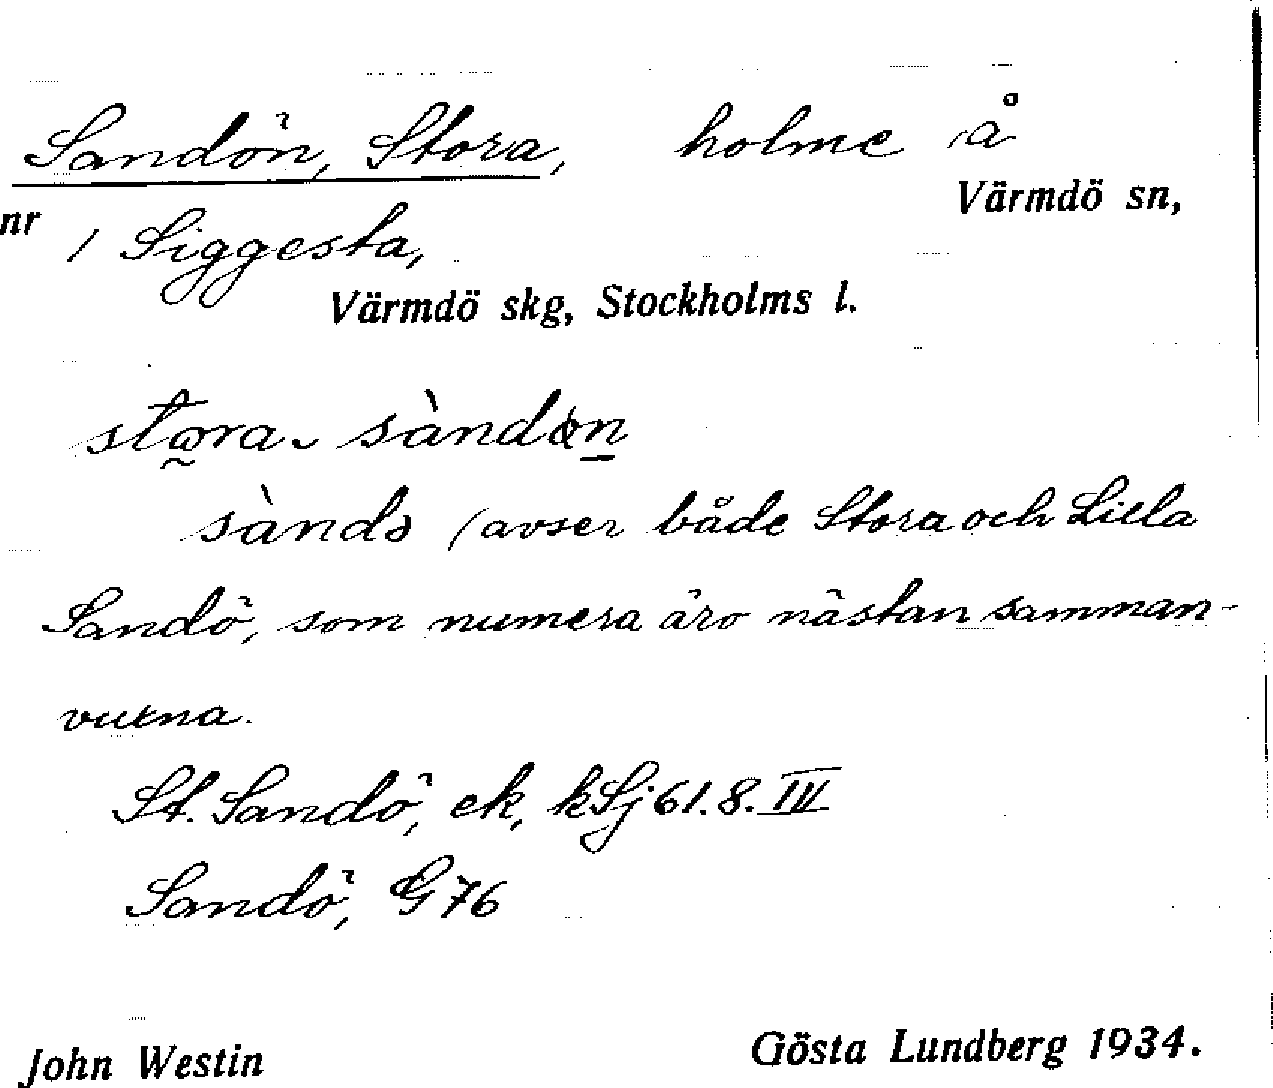 Sandön, Stora, holme å
Värmdö sn,
nr 1 Siggesta,
Värmdö skg, Stockholms l.
stora sàndön
sàndö (avser både Stora och Lilla
Sandö, som numera äro nästan samman-
vuxna.
St. Sandö, ek, kSj 61.8. III
Sandö, G 76
John Westin
Gösta Lundberg 1934.